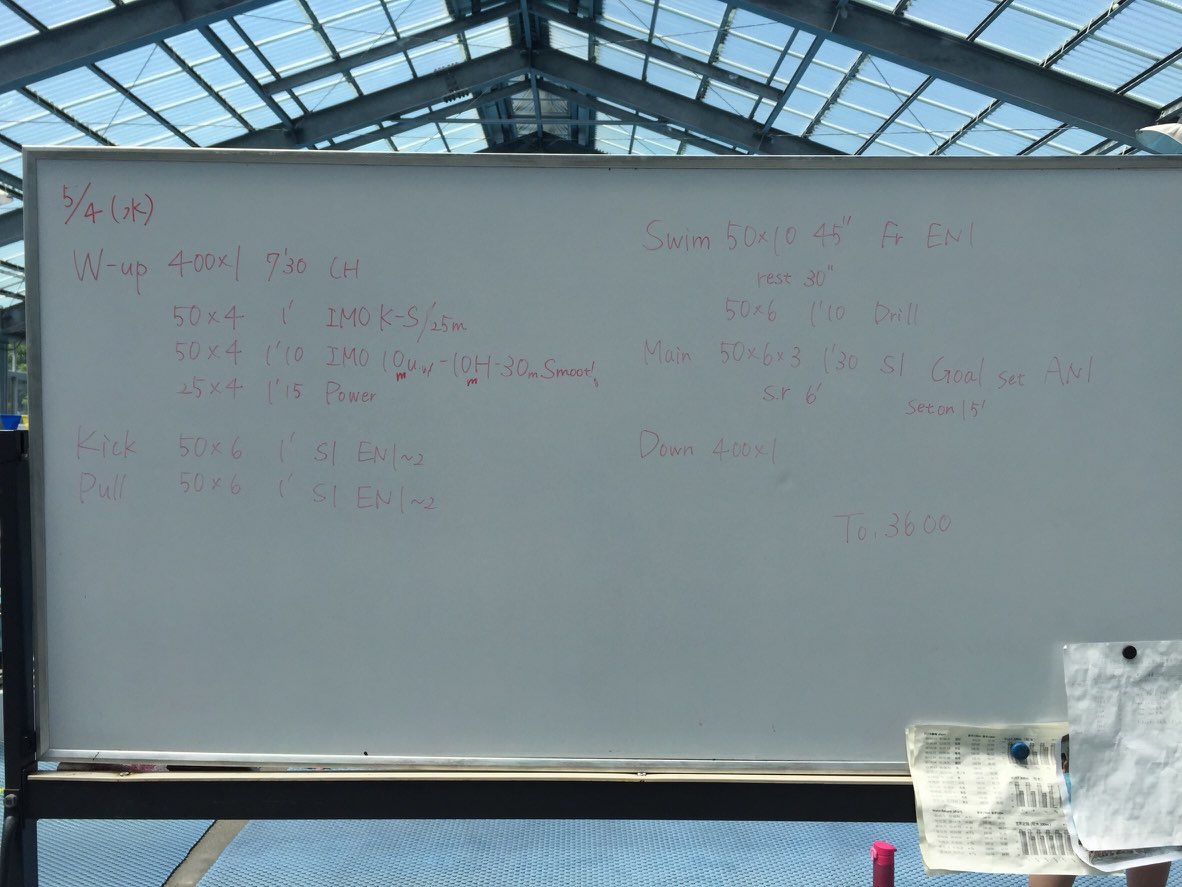 5/4 (水)
W-up 400×1 7'30 CH
50×4 1' IMO K-S/25m
50×4 1'10 IMO 10m -10mH-30m Smooth
25×4 1'15 Power
Kick 50×6 1' S1 EN1~2
Pull 50×6 1' S1 EN1~2
Swim 50×10 45" Fr EN1
rest 30"
50×6 1'10 Drill
Main 50×6×3 1'30 S1 Goal set AN1
S.r 6' Set on 15'
Down 400×1
To. 3600